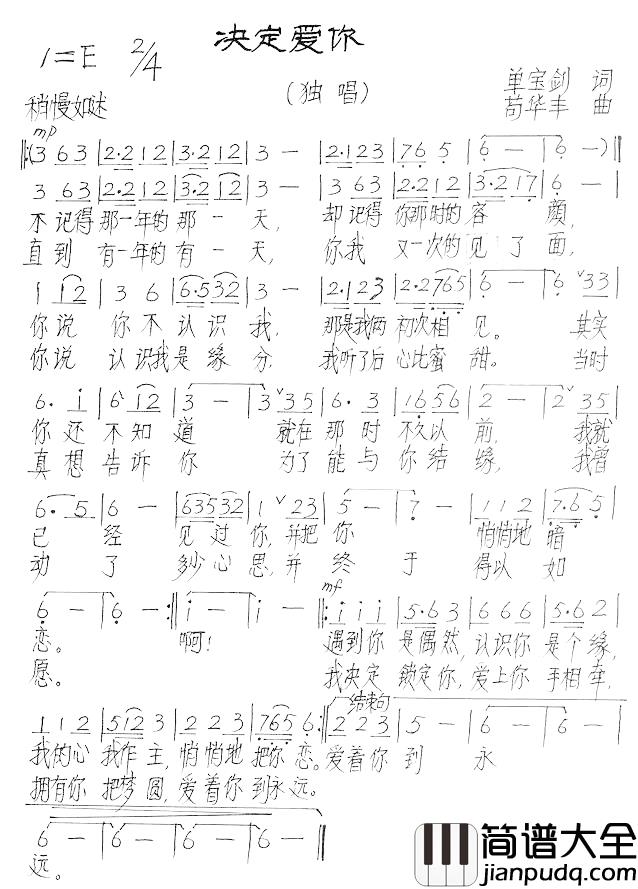 决定爱你
1=E 2/4
(独唱)
单宝剑 词
苟华丰 曲
稍慢如述
mp
‖:(3 63|2·2 12|3·2 12|3 —|2·1 23|76 5|6 —|6 —)‖
3 63|2·2 12|3·2 12|3 —|3 63|2·2 12|3·2 17|6 —|
不记得 那一年的 那一天, 却记得 你那时的 容颜,
直到 有一年的 有一天, 你我 又一次的 见了面,
1 12|3 6|6·5 32|3 —|2·1 23|2·2 765|6 —|6 ∨33|
你说 你不认识我, 那是我俩 初次相见。 其实
你说 认识我是缘分, 我听了后 心比蜜甜。 当时
6· i|6 12|3 —|3 ∨35|6· 3|16 56|2 —|2 ∨35|
你还不知道 就在那时不久以前, 我就
真想告诉你 为了能与你结缘, 我曾
6· 5|6 —|635 32|1 ∨23|5 —|7 —|11 2|7·6 5|
已经见过你,并把你 悄悄地暗
动了多少心思,并终于 得以如
6 —|6 —:‖i —|i —‖:i i i|5·6 3|66 6|5·6 2|
mf
恋。 啊! 遇到你 是偶然,认识你 是个缘,
愿。 我决定 锁定你,爱上你 手相牵,
结束句
11 2|512 3|22 3|765 6:‖22 3|5 —|6 —|6 —|
我的心 我作主,悄悄地 把你恋。爱着你到永
拥有你 把梦圆,爱着你到永远。
6 —|6 —|6 —|6 —‖
远。
简谱大全
jianpudq.com